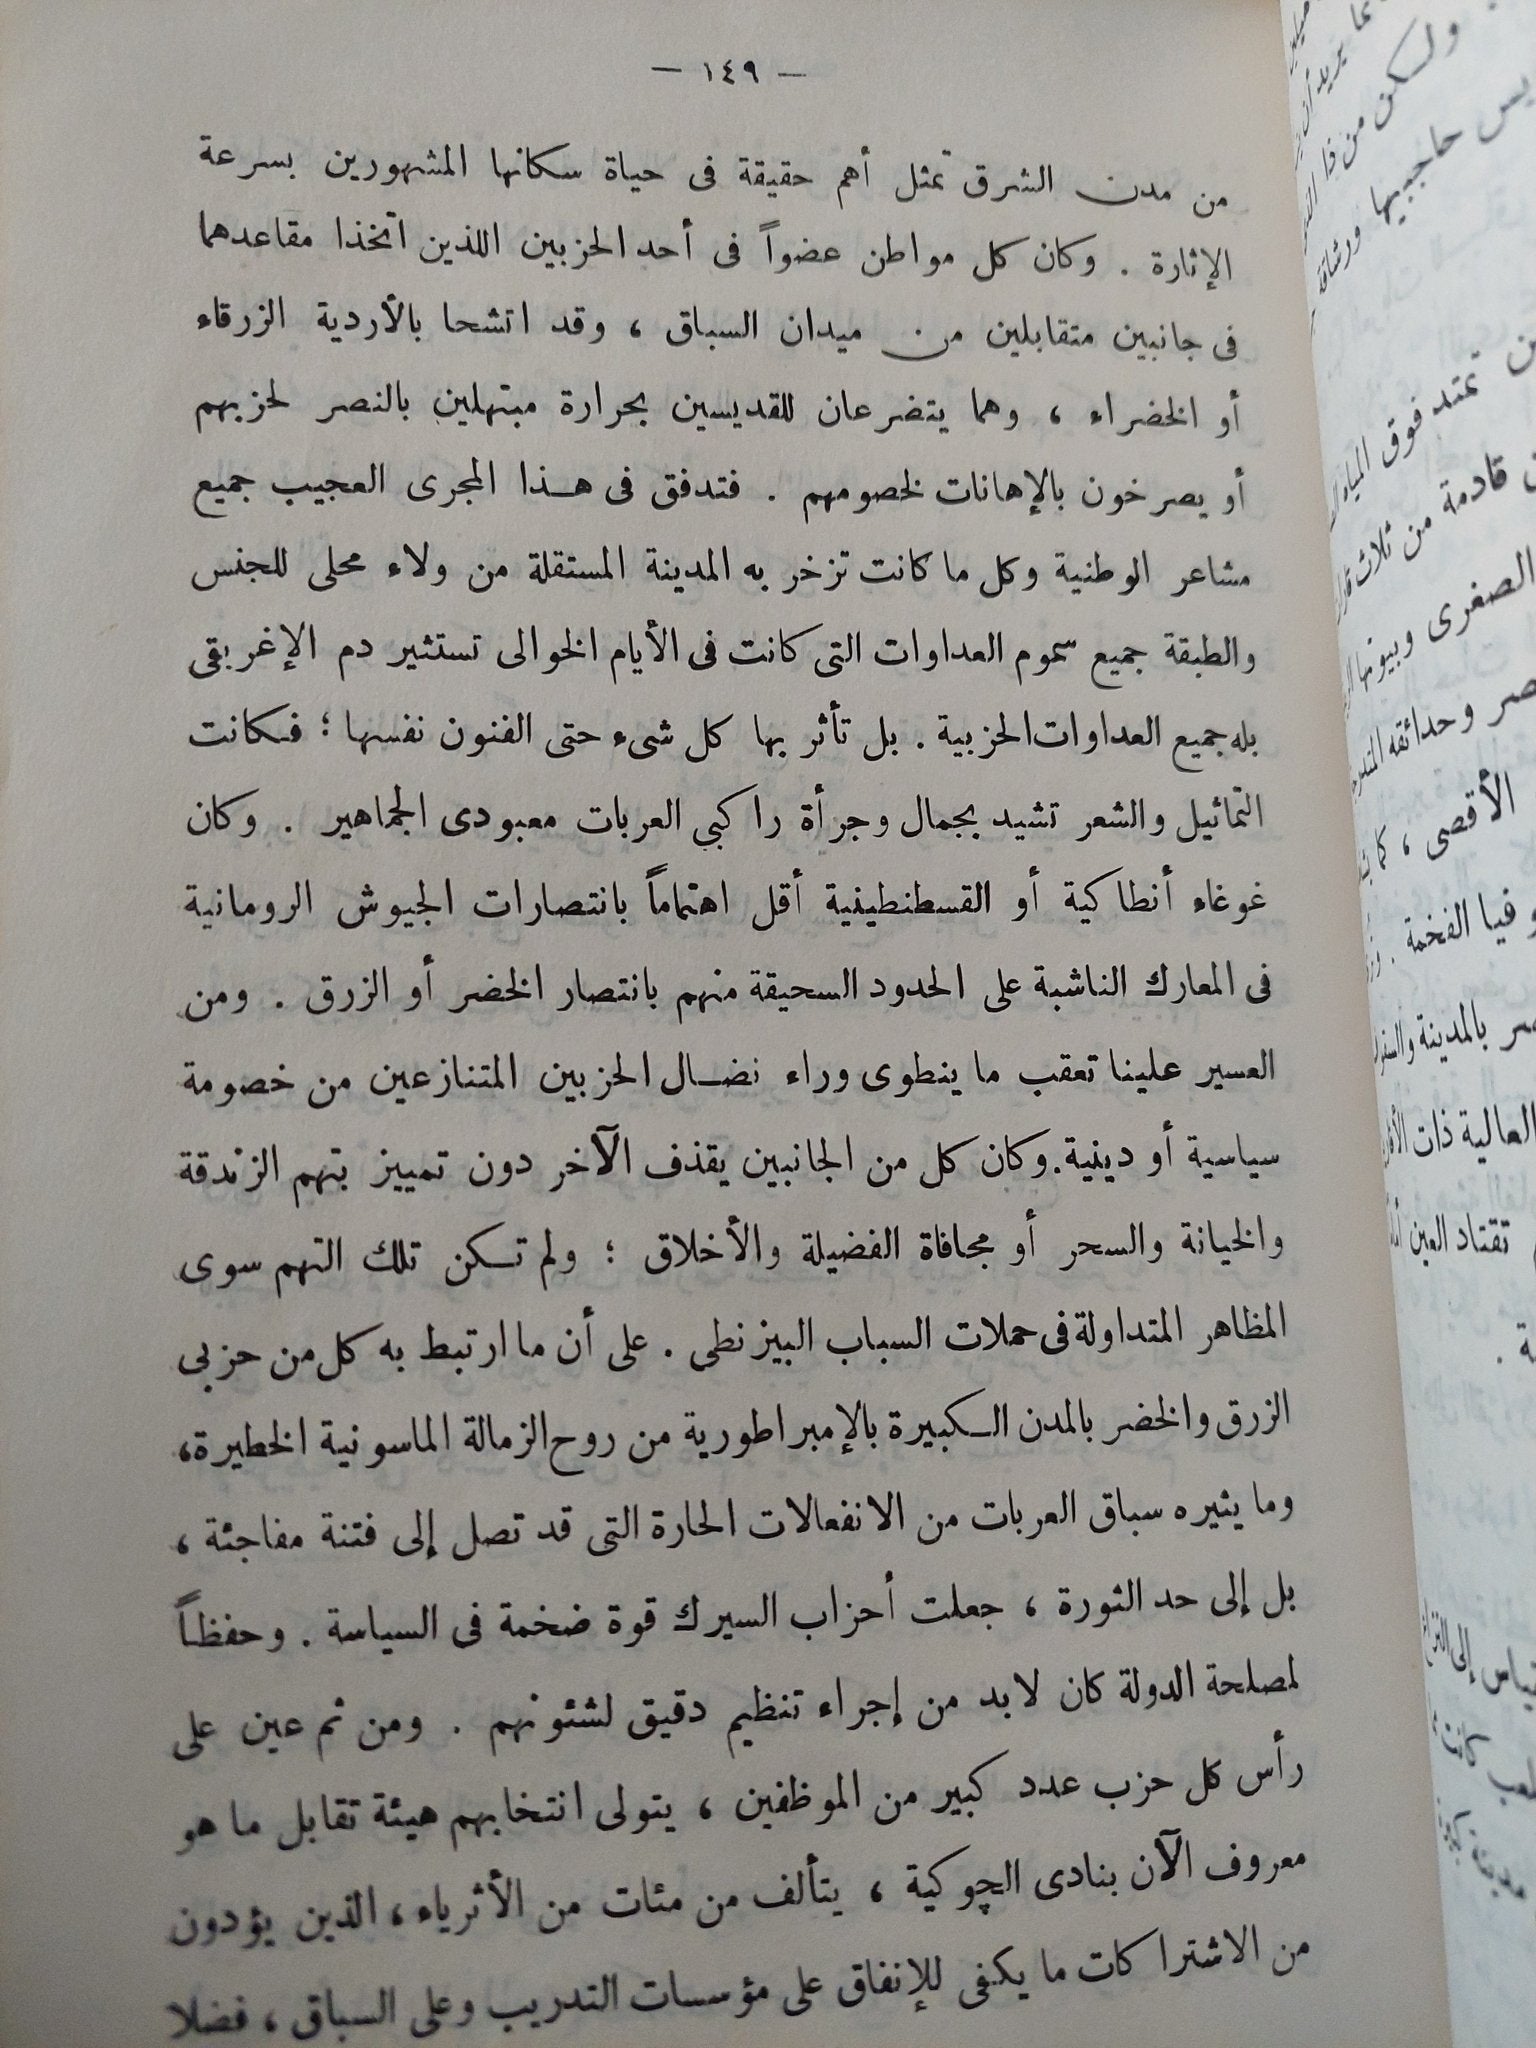 — ١٤٩ —
من مدن الشرق تمثل أهم حقيقة فى حياة سكانها المشهورين بسرعة
الإثارة . وكان كل مواطن عضواً فى أحد الحزبين اللذين اتخذا مقاعدهما
فى جانبين متقابلين من ميدان السباق ، وقد اتشحا بالأردية الزرقاء
أو الخضراء ، وهما يتضرعان للقديسين بحرارة مبتهلين بالنصر لحزبهم
أو يصرخون بالإهانات لخصومهم . فتدفق فى هذا المجرى العجيب جميع
مشاعر الوطنية وكل ما كانت تزخر به المدينة المستقلة من ولاء محلى للجنس
والطبقة جميع سموم العداوات التى كانت فى الأيام الخوالى تستثير دم الإغريقى
بله جميع العداوات الحزبية . بل تأثر بها كل شىء حتى الفنون نفسها ؛ فكانت
التماثيل والشعر تشيد بجمال وجرأة راكبي العربات معبودى الجماهير . وكان
غوغاء أنطاكية أو القسطنطينية أقل اهتماماً بانتصارات الجيوش الرومانية
فى المعارك الناشبة على الحدود السحيقة منهم بانتصار الخضر أو الزرق . ومن
العسير علينا تعقب ما ينطوى وراء نضال الحزبين المتنازعين من خصومة
سياسية أو دينية . وكان كل من الجانبين يقذف الآخر دون تمييز بتهم الزندقة
والخيانة والسحر أو مجافاة الفضيلة والأخلاق ؛ ولم تكن تلك التهم سوى
المظاهر المتداولة فى حملات السباب البيزنطى . على أن ما ارتبط به كل من حزبى
الزرق والخضر بالمدن الكبيرة بالإمبراطورية من روح الزمالة الماسونية الخطيرة،
وما يثيره سباق العربات من الانفعالات الحارة التى قد تصل إلى فتنة مفاجئة ،
بل إلى حد الثورة ، جعلت أحزاب السيرك قوة ضخمة فى السياسة . وحفظاً
لمصلحة الدولة كان لابد من إجراء تنظيم دقيق لشئونهم . ومن ثم عين على
رأس كل حزب عدد كبير من الموظفين ، يتولى انتخابهم هيئة تقابل ما هو
معروف الآن بنادى الچوكية ، يتألف من مئات من الأثرياء ، الذين يؤدون
من الاشتراكات ما يكفى للإنفاق على مؤسسات التدريب وعلى السباق ، فضلا
ولكن من ذا
حاجبيها ورشاقة
تمتد فوق المياه
قادمة من ثلاث
الصغرى وبيوتها
وحدائقه
الأقصى ، كما
الفخمة .
بالمدينة
العالية ذات
تقتاد العين
إلى
كانت